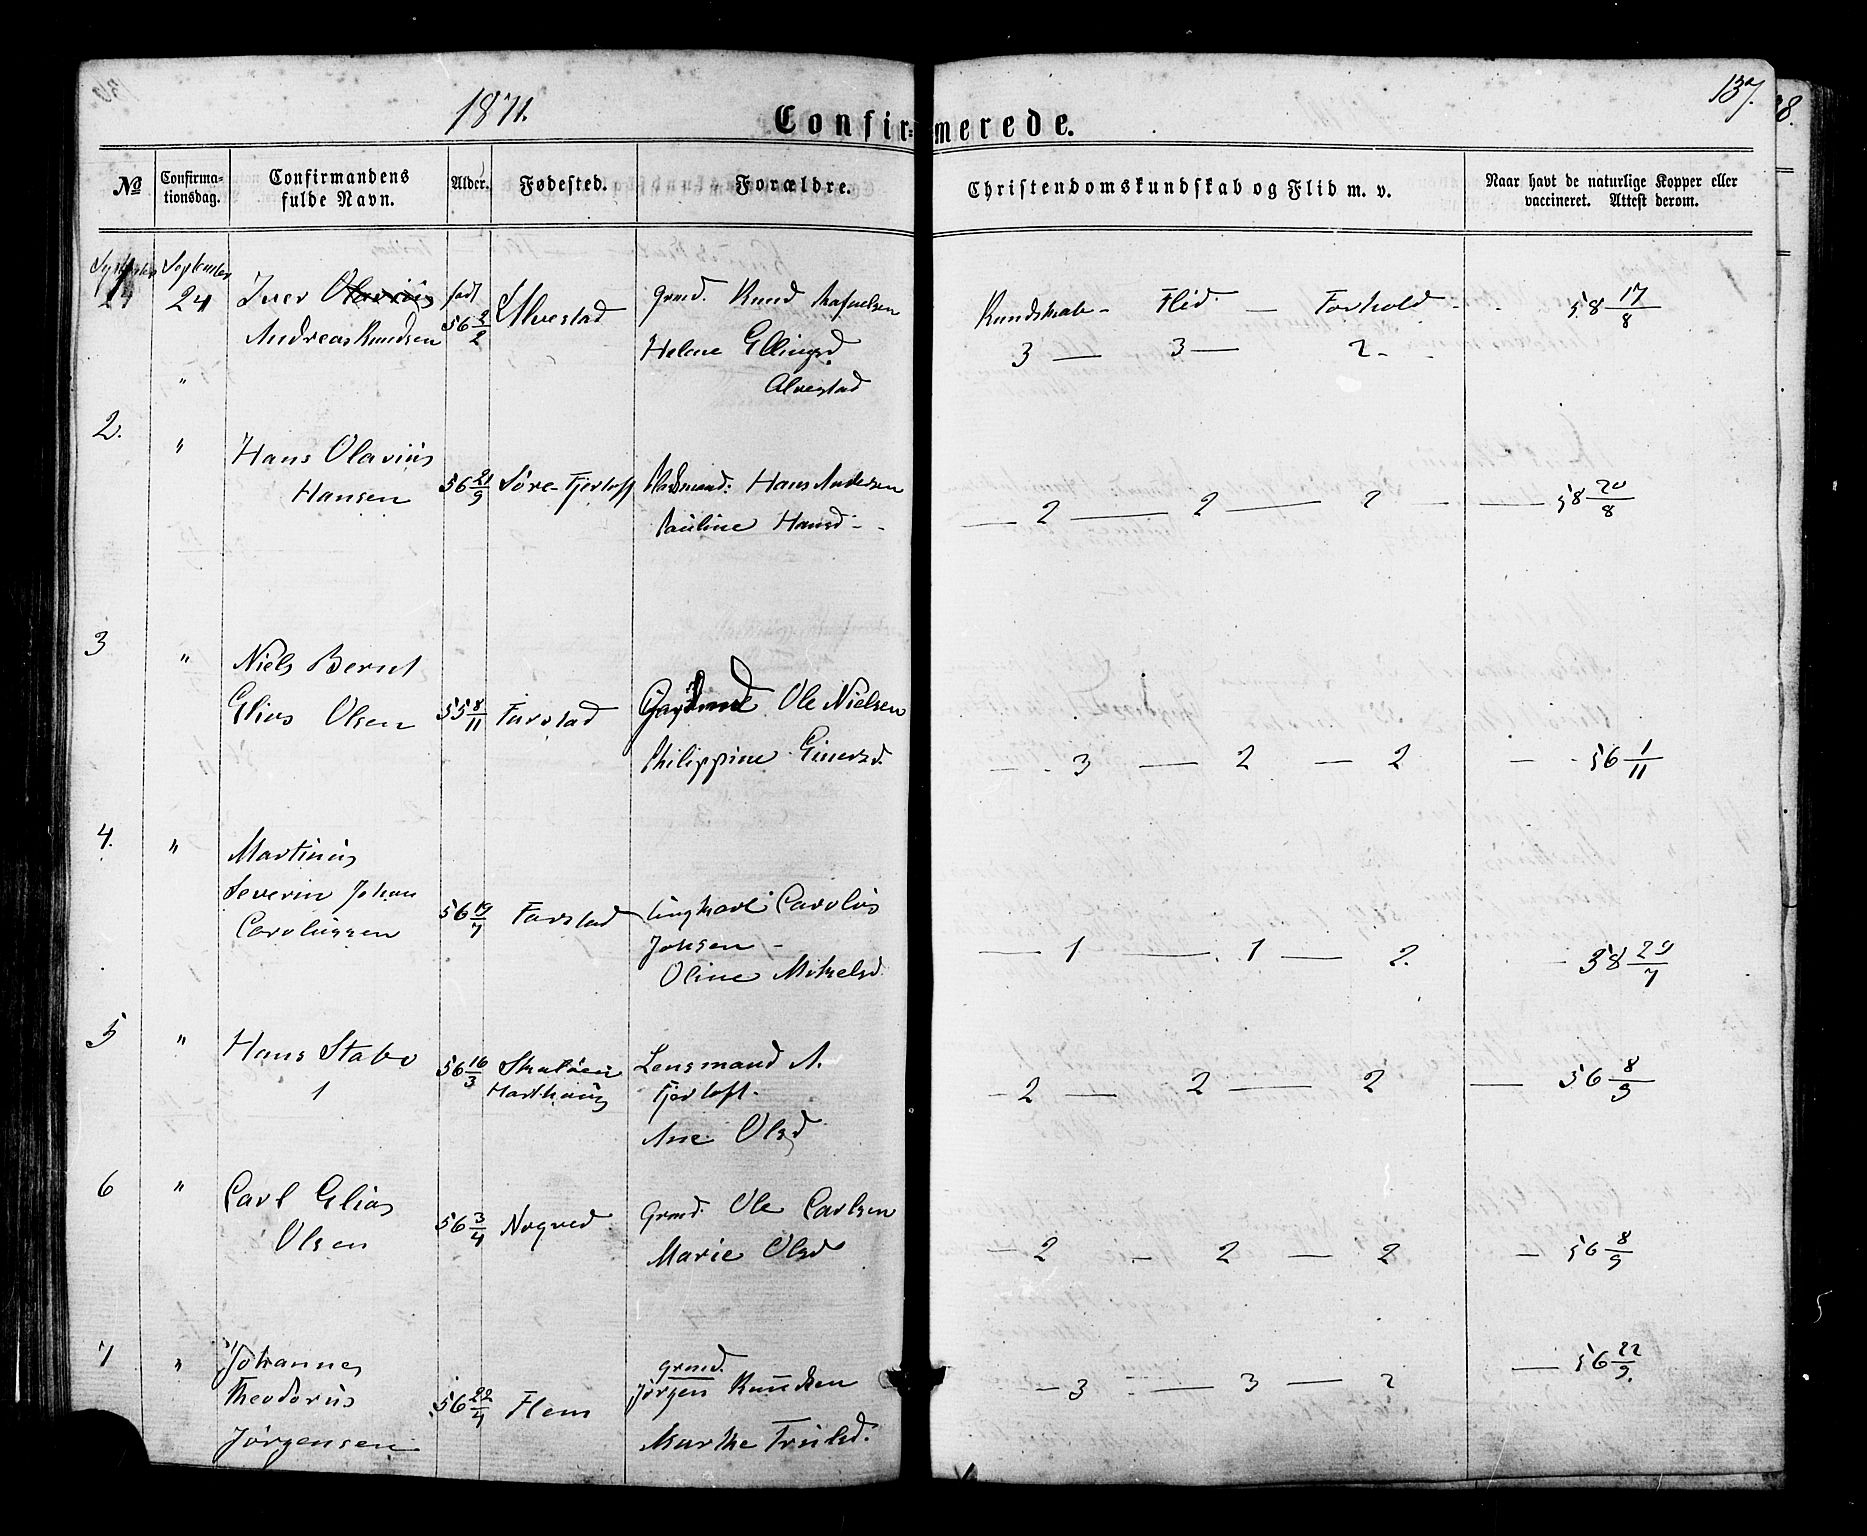 1871.
Confirmerede.
137.
38.
№
Confirma-
tionsdag.
Confirmandens
fulde Navn.
Alder.
Fødested.
Forældre.
Christendomskundskab og Flid m. v.
Naar havt de naturlige Kopper eller
vaccineret. Attest derom.
1
September
24
Iver Olavius
Andreas Knudsen
født
56 2/2
Alvestad
Grmd. Knud Rafaelsen
Helene Ellingsd
Alvestad
Kundskab - Flid - Forhold - - 58 17/8
3 — 3 — 2 - -
"
2.
"
Hans Olavius
Hansen
56 21/9
Søre-Fjertoft
Husmand: Hans Andersen
Pauline Hansd - -
— 2 — 2 — 2 — 58 20/8
3
"
Niels Bernt
Elias Olsen
55 8/11
Farstad
Gaardmand Ole Nielsen
Philippine Einersd.
— 3 — 2 — 2 — 56 1/11
4.
"
Martinus
Severin Johan
Carolussen
56 19/7
Farstad
Ungkarl Carolus
Johsen -
Oline Mikelsd.
— 1 — 1 — 2. — 58 29/7
5
"
Hans Stabo
1
56 16/3
Lensmand A.
Fjertoft.
Ane Olsd
- 2 — 2 — 2 — 56 8/9
6
"
Carl Elias
Olsen
56 3/4
Nogved
Grmd. Ole Carlsen
Marie Olsd
— 2 — 2 — 2 — 56 8/9
7
"
Johannes
Theodorus
Jørgensen
56 22/4
Flem
grmd.
Jørgen Knudsen
Marthe Trulsd.
— 3 — 3 — 2 — 56 22/9.